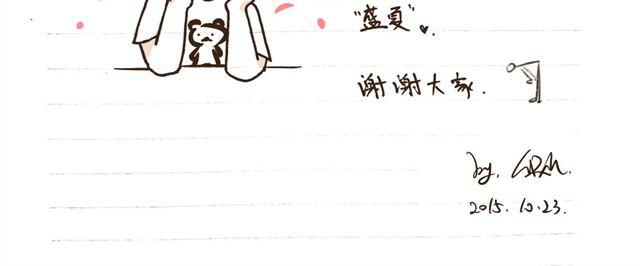 "盛夏".
谢谢大家.
by.
2015.10.23.